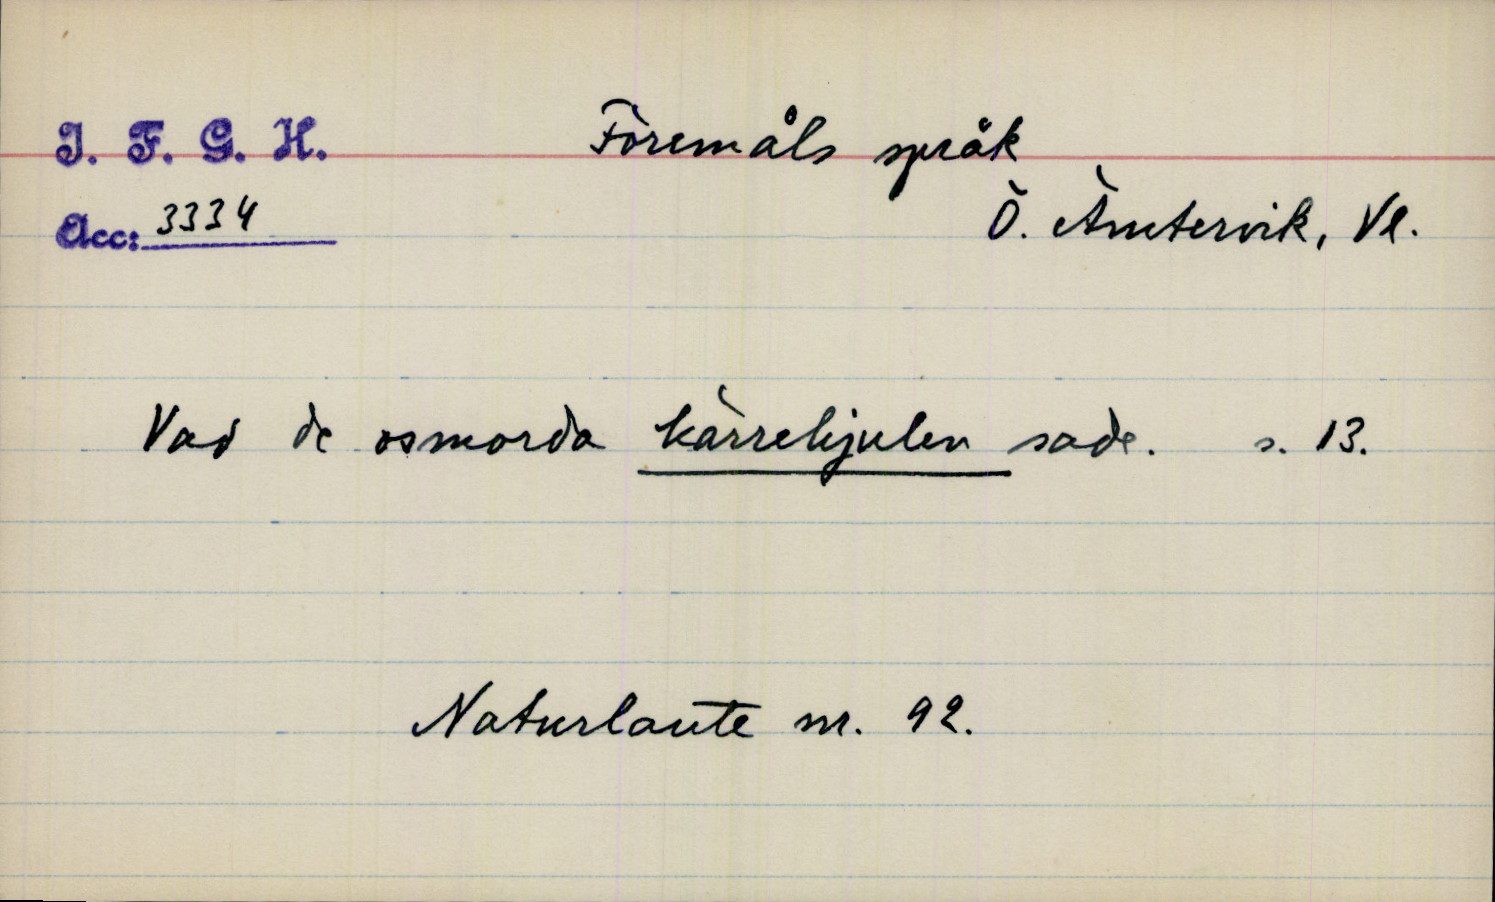 I. F. G. H.
Föremåls språk
Acc: 3334
Ö. Ämtervik, Vl.
Vad de osmorda kärrehjulen sade. s. 13.
Naturlaute nr. 92.